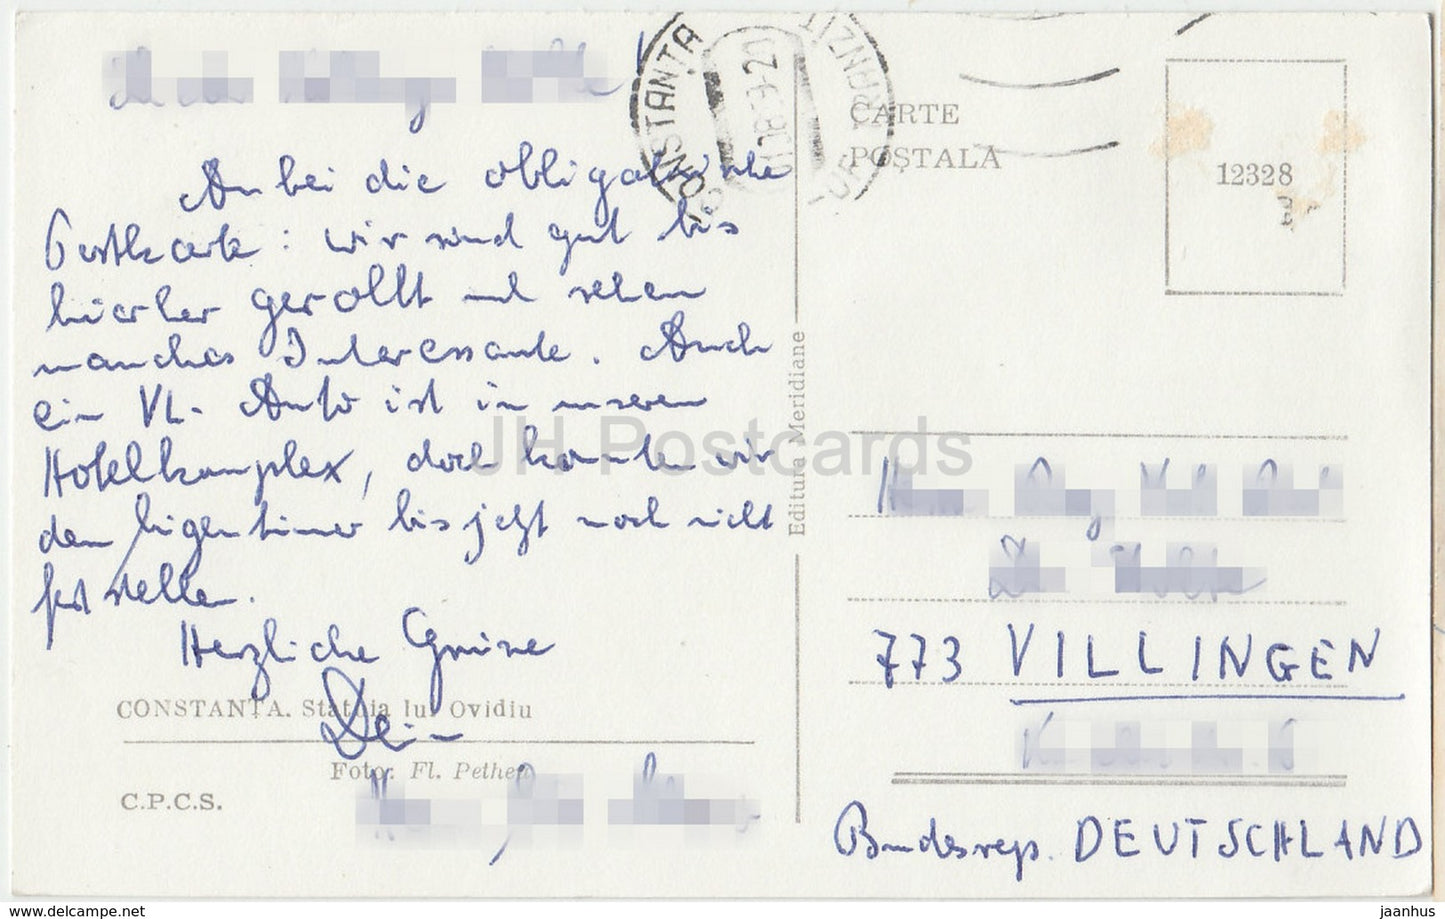 Anbei die obligatorische
Postkarte: wir sind gut bis
hierher gerollt und sehen
manches Interessante. Auch
ein VL-Auto ist in unserem
Hotelkomplex, doch konnten wir
den Eigentümer bis jetzt noch nicht
feststellen.
Herzliche Grüsse
Dein
CONSTANȚA. Statuia lui Ovidiu
Foto: Fl. Pethen
C.P.C.S.
Editura Meridiane
CONSTANȚA
TRANZIT
CARTE
POȘTALĂ
12328
773 VILLINGEN
Bundesrep. DEUTSCHLAND
JH Postcards
www.delcampe.net
jaanhus